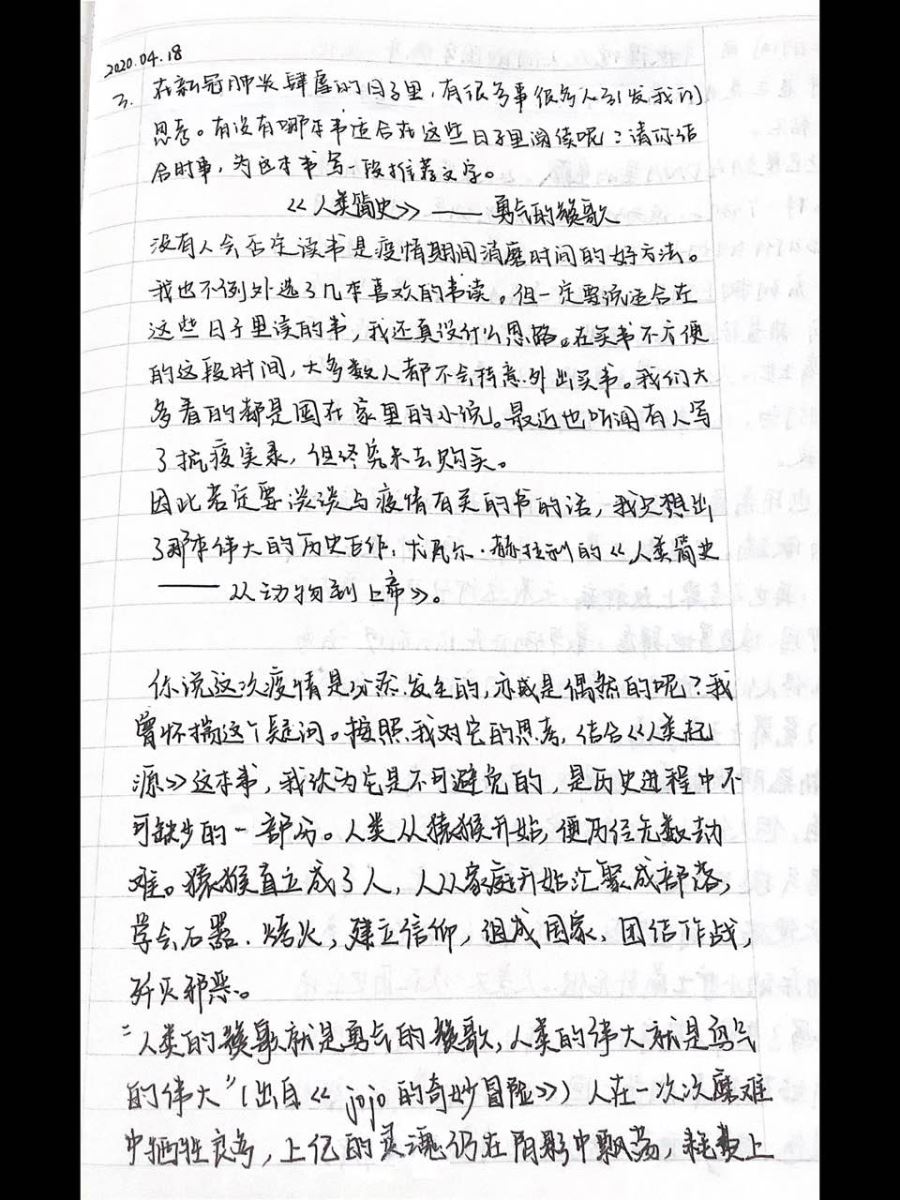 2020.04.18
3. 在新冠肺炎肆虐的日子里，有很多事很多人引发我们
思考。有没有哪本书适合在这些日子里阅读呢？请你结
合时事，为这本书写一段推荐文字。
《人类简史》——勇气的赞歌
没有人会否定读书是疫情期间消磨时间的好方法。
我也不例外选了几本喜欢的书读。但一定要说适合在
这些日子里读的书，我还真没什么思路。在买书不方便
的这段时间，大多数人都不会特意外出买书。我们大
多看的都是囤在家里的小说。最近也听闻有人写
了抗疫实录，但终究未去购买。
因此若定要谈谈与疫情有关的书的话，我只想出
了那本伟大的历史巨作，尤瓦尔·赫拉利的《人类简史
——从动物到上帝》。
你说这次疫情是必然发生的，亦或是偶然的呢？我
曾怀揣这个疑问。按照我对它的思考，结合《人类起
源》这本书，我认为它是不可避免的，是历史进程中不
可缺少的一部分。人类从猿猴开始，便历经无数劫
难。猿猴直立成了人，人从家庭开始汇聚成部落，
学会石器、烧火，建立信仰，组成国家、团结作战，
歼灭邪恶。
"人类的赞歌就是勇气的赞歌，人类的伟大就是勇气
的伟大"（出自《jojo的奇妙冒险》）人在一次次磨难
中牺牲良多，上亿的灵魂仍在阴影中飘荡，耗费上